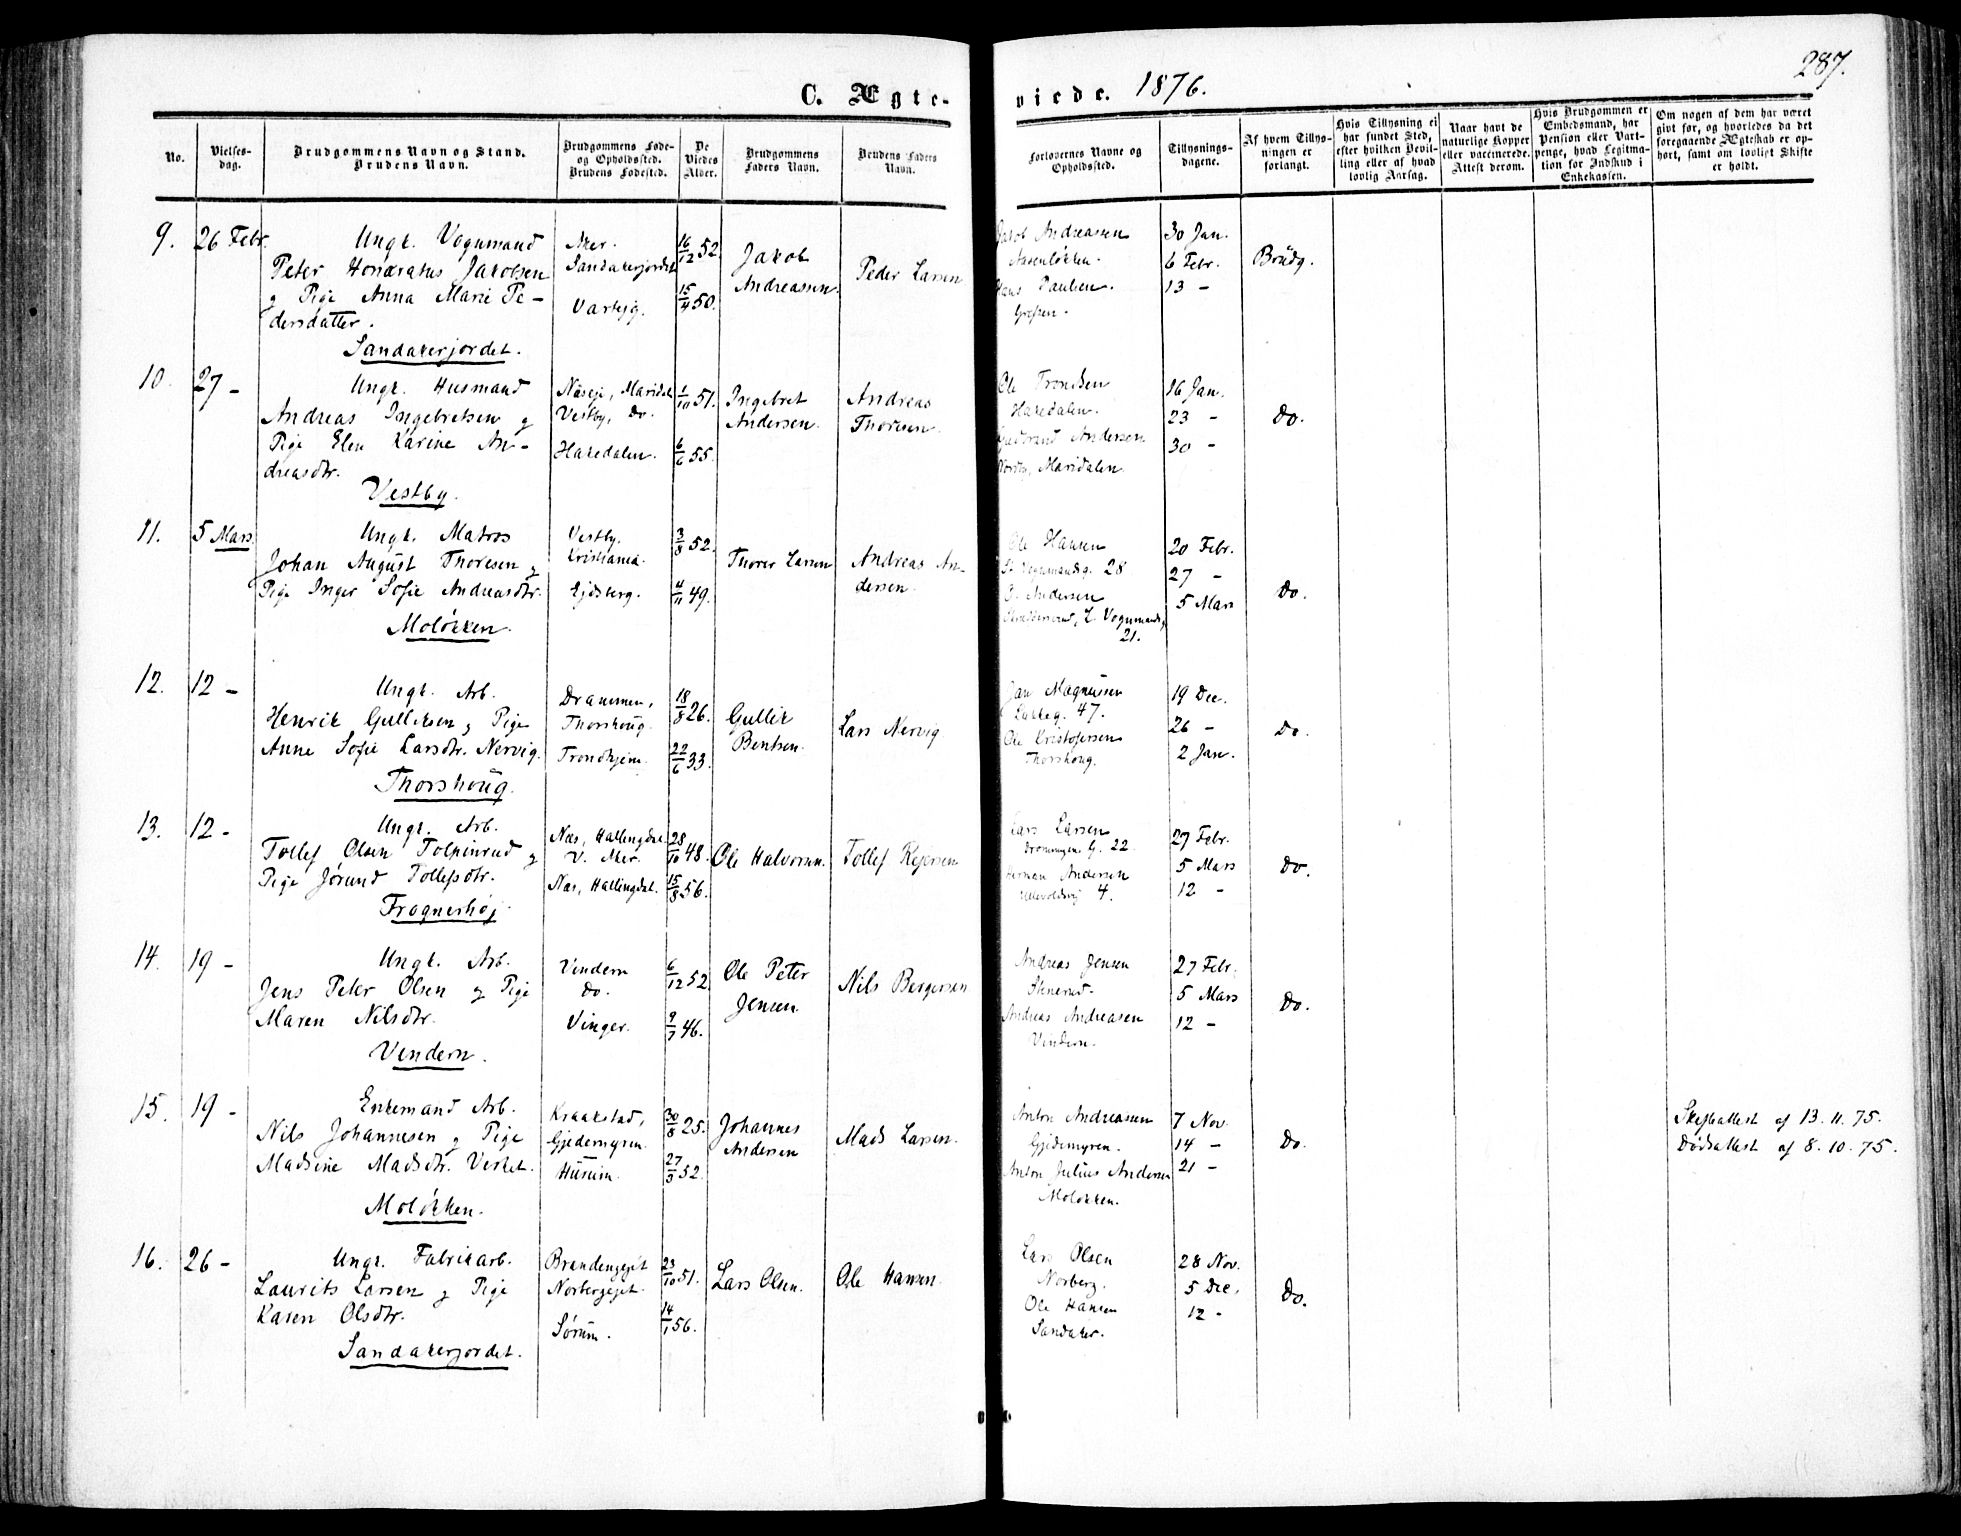 287.
C. Ægte-
viede. 1876.
No.
Vielses-
dag.
Brudgommens Navn og Stand.
Brudens Navn.
Brudgommens Føde-
og Opholdssted.
Brudens Fødested.
De
Viedes
Alder.
Brudgommens
Faders Navn.
Brudens Faders
Navn.
Forlovernes Navne og
Opholdssted.
Tillysnings-
dagene.
Af hvem Tillys-
ningen er
forlangt.
Hvis Tillysning ei
har fundet Sted,
efter hvilken Bevil-
ling eller af hvad
lovlig Aarsag.
Naar havt de
naturlige Kopper
eller vaccinerede.
Attest derom.
Hvis Brudgommen er
Embedsmand, har
Pension eller Vart-
penge, hvad Legitima-
tion for Indskud i
Enkekassen.
Om nogen af dem har været
gift før, og hvorledes da det
foregaaende Ægteskab er op-
hørt, samt om lovligt Skifte
er holdt.
9.
26 Febr.
Ungk. Vognmand
Peter Honoratus Jakobsen
og Pige Anna Marie Pe-
dersdatter.
Sandakerjordet.
Aker.
Sandakerjordet
Varteig.
16/12 52.
15/4 50.
Jakob
Andreassen.
Peder Larsen
Jakob Andreasen
Aasenløkken.
Hans Paulsen.
Grefsen.
30 Jan.
6 Febr.
13 -
Brudg.
10.
27 -
Ungk. Husmand
Andreas Ingebretsen og
Pige Elen Karine An-
dreasdtr.
Vestby.
Næseje, Maridal
Vestby, Do.
Hakedalen.
1/10 51.
6/6 55.
Ingebret
Andersen.
Andreas
Thoresen.
Ole Trondsen
Hakedalen.
Gulbrand Andersen
Maridalen.
16 Jan.
23 -
30 -
Do.
11.
5 Mars
Ungk. Matros
Johan August Thoresen og
Pige Inger Sofie Andreasdtr.
Moløkken.
Vestby.
Kristiania.
Ejdsberg.
3/8 52.
4/11 49.
Thorer Larsen
Andreas An-
dersen.
Ole Hansen
Vognmandsg. 28
Andersen
L. Vognmandsg.
21.
20 Febr.
27 -
5 Mars
Do.
12.
12 -
Ungk. Arb.
Henrik Gulliksen og Pige
Anne Sofie Larsdtr. Nervig.
Thorshoug.
Drammen,
Thorshoug.
Trondhjem.
18/8 26.
22/6 33.
Gullik
Bentsen.
Lars Nervig
Jan Magnussen
Lakkeg. 47.
Ole Kristofersen
Thorshoug.
19 Dec.
26 -
2 Jan.
Do.
13.
12 -
Ungk. Arb.
Tollef Olsen Tolpinrud og
Pige Jørund Tollefsdtr.
Frognerhøj.
Næs, Hallingdal.
V. Aker.
Næs, Hallingdal.
28/10 48.
15/8 56.
Ole Halvorsen.
Tollef
Lars Larsen
Dronningens G. 22.
Herman Andersen
Ullevoldsvej 4.
27 Febr.
5 Mars
12 -
Do.
14.
19 -
Ungk. Arb.
Jens Peter Olsen og Pige
Maren Nilsdtr.
Vindern.
Vindern
Do.
Vinger.
6/12 52
9/7 46.
Ole Peter
Jensen.
Nils Bergersen
Andreas Jensen
Andreas Andreasen
Vindern.
27 Febr.
5 Mars
12 -
Do.
15.
19 -
Enkemand Arb.
Nils Johannesen og Pige
Madsine Madsdtr. Verket.
Moløkken.
Kraakstad,
Gjedemyren.
Hurum.
30/8 25.
27/3 52.
Johannes
Andersen
Mads Larsen.
Anton Andreasen
Gjedemyren.
Anton Julius Andersen
Moløkken.
7 Nov.
14 -
21 -
Do.
Skifteattest af 13.11.75.
Dødsattest af 8.10.75.
16.
26 -
Ungk. Fabrikarb.
Laurits Larsen og Pige
Karen Olsdtr.
Sandakerjordet.
Brandengejet
Norbergejet.
Sørum.
23/10 51.
14/1 56.
Lars Olsen.
Ole Hansen.
Lars Olsen
Norberg.
Ole Hansen
Sandaker.
28 Nov.
5 Dec.
12 -
Do.